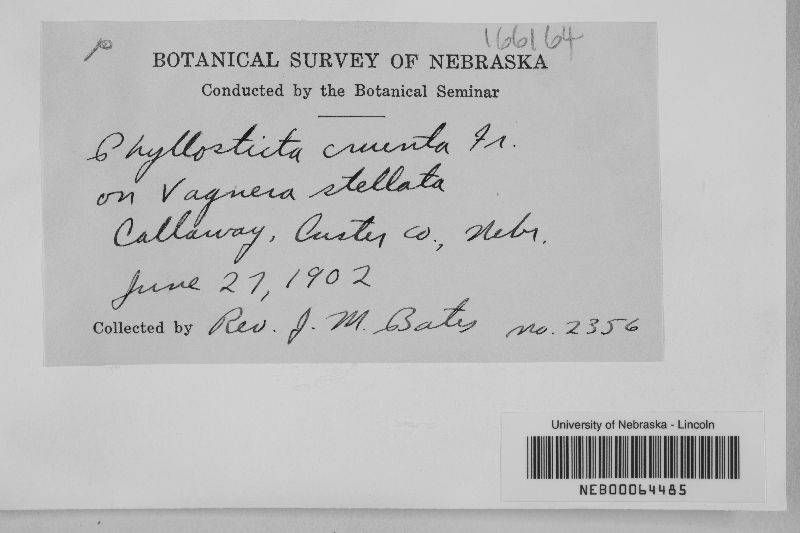 p 166164
BOTANICAL SURVEY OF NEBRASKA
Conducted by the Botanical Seminar
Phyllosticta cruenta Fr.
on Vagnera stellata
Callaway, Custer co., Nebr.
June 27, 1902
Collected by Rev. J. M. Bates no. 2356
University of Nebraska - Lincoln
NEB00064485